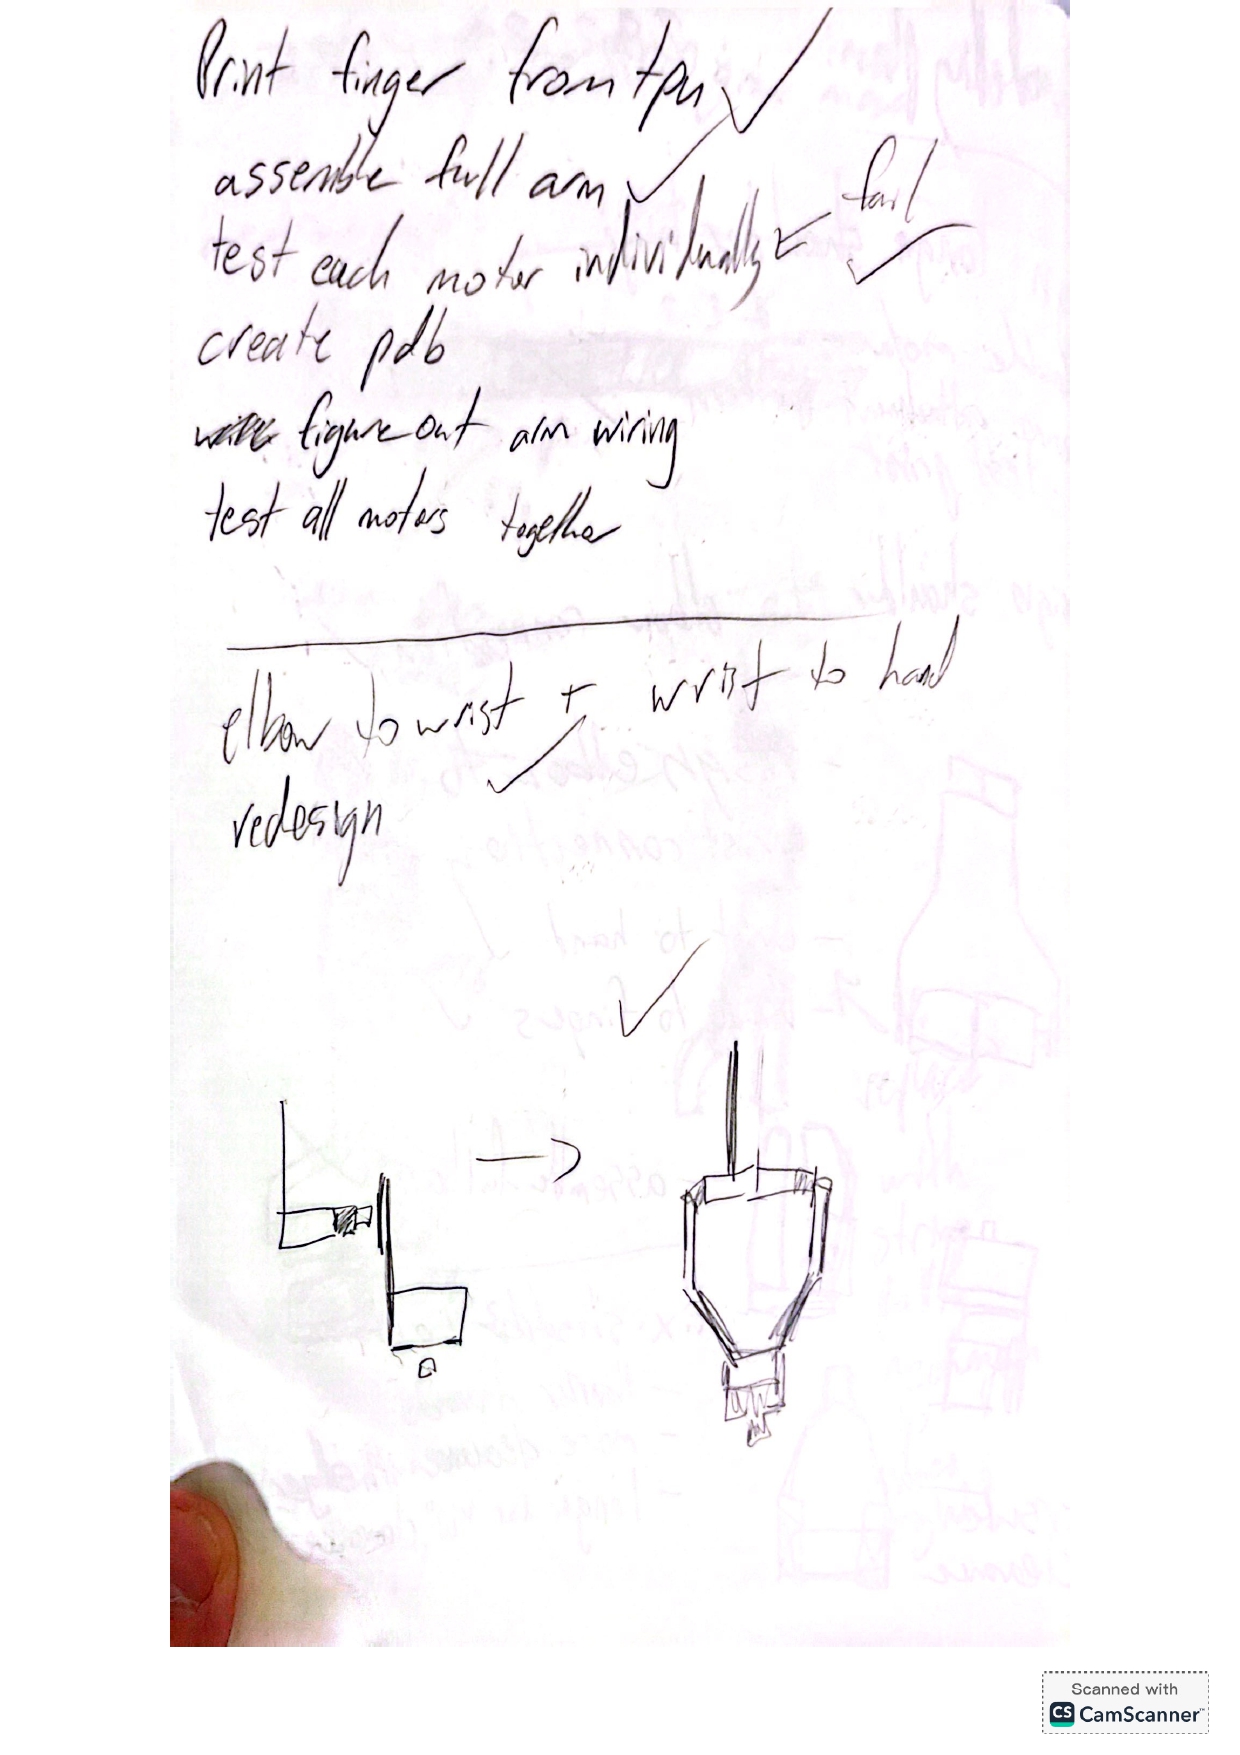 Print finger from tpu ✓
assemble full arm ✓
test each motor individually ← fail ✓
create pdb
figure out arm wiring
test all motors together
elbow to wrist + wrist to hand
redesign ✓
✓
Scanned with
CS CamScanner